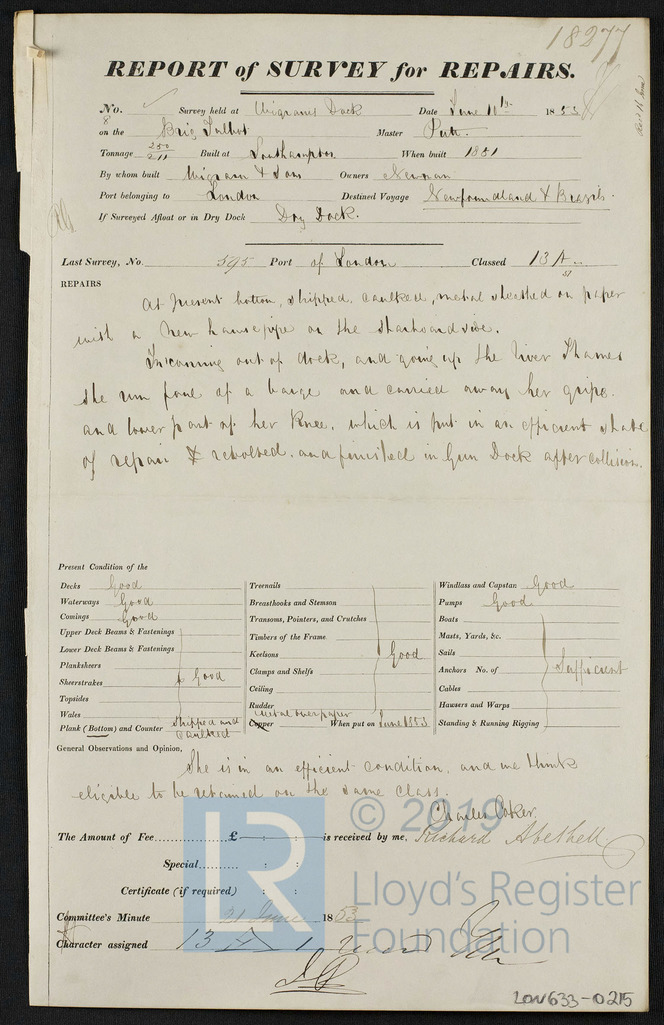 18277
REPORT of SURVEY for REPAIRS.
No. Survey held at Wigrams Dock Date June 10th 1853
on the Brig Talbot Master
Tonnage 250 211 Built at Southampton When built 1851
By whom built Wigram & Sons Owners Newman
Port belonging to London Destined Voyage Newfoundland & Brazils.
If Surveyed Afloat or in Dry Dock Dry Dock.
Last Survey, No. 595 Port of London Classed 13 A
51
REPAIRS
At present bottom, stripped, caulked, metal sheathed on paper
with a New hawse pipe on the starboard side.
In coming out of dock, and going up the River Thames
she run foul of a barge and carried away her gripe.
and lower part of her Knee. which is put in an efficient state
of repair & rebolted. and finished in Gun Dock after collision.
Present Condition of the
Decks Good
Waterways Good
Comings Good
Upper Deck Beams & Fastenings
Lower Deck Beams & Fastenings
Planksheers
Sheerstrakes Good
Topsides
Wales
Plank (Bottom) and Counter stripped and caulked
Treenails
Breasthooks and Stemson
Transoms, Pointers, and Crutches
Timbers of the Frame
Keelsons Good
Clamps and Shelfs
Ceiling
Rudder
metal over paper
Copper When put on June 1853
Windlass and Capstan Good
Pumps Good
Boats
Masts, Yards, &c.
Sails
Anchors No. of Sufficient
Cables
Hawsers and Warps
Standing & Running Rigging
General Observations and Opinion,
She is in an efficient condition. and we think
eligible to be retained on the same class.
Charles Coker.
The Amount of Fee £ : : is received by me, Richard Abethell
Special : :
Certificate (if required) : :
Committee's Minute 21 June 1853
Character assigned 13 A 1
© 2019
LR
Lloyd's Register
Foundation
LON633-0215